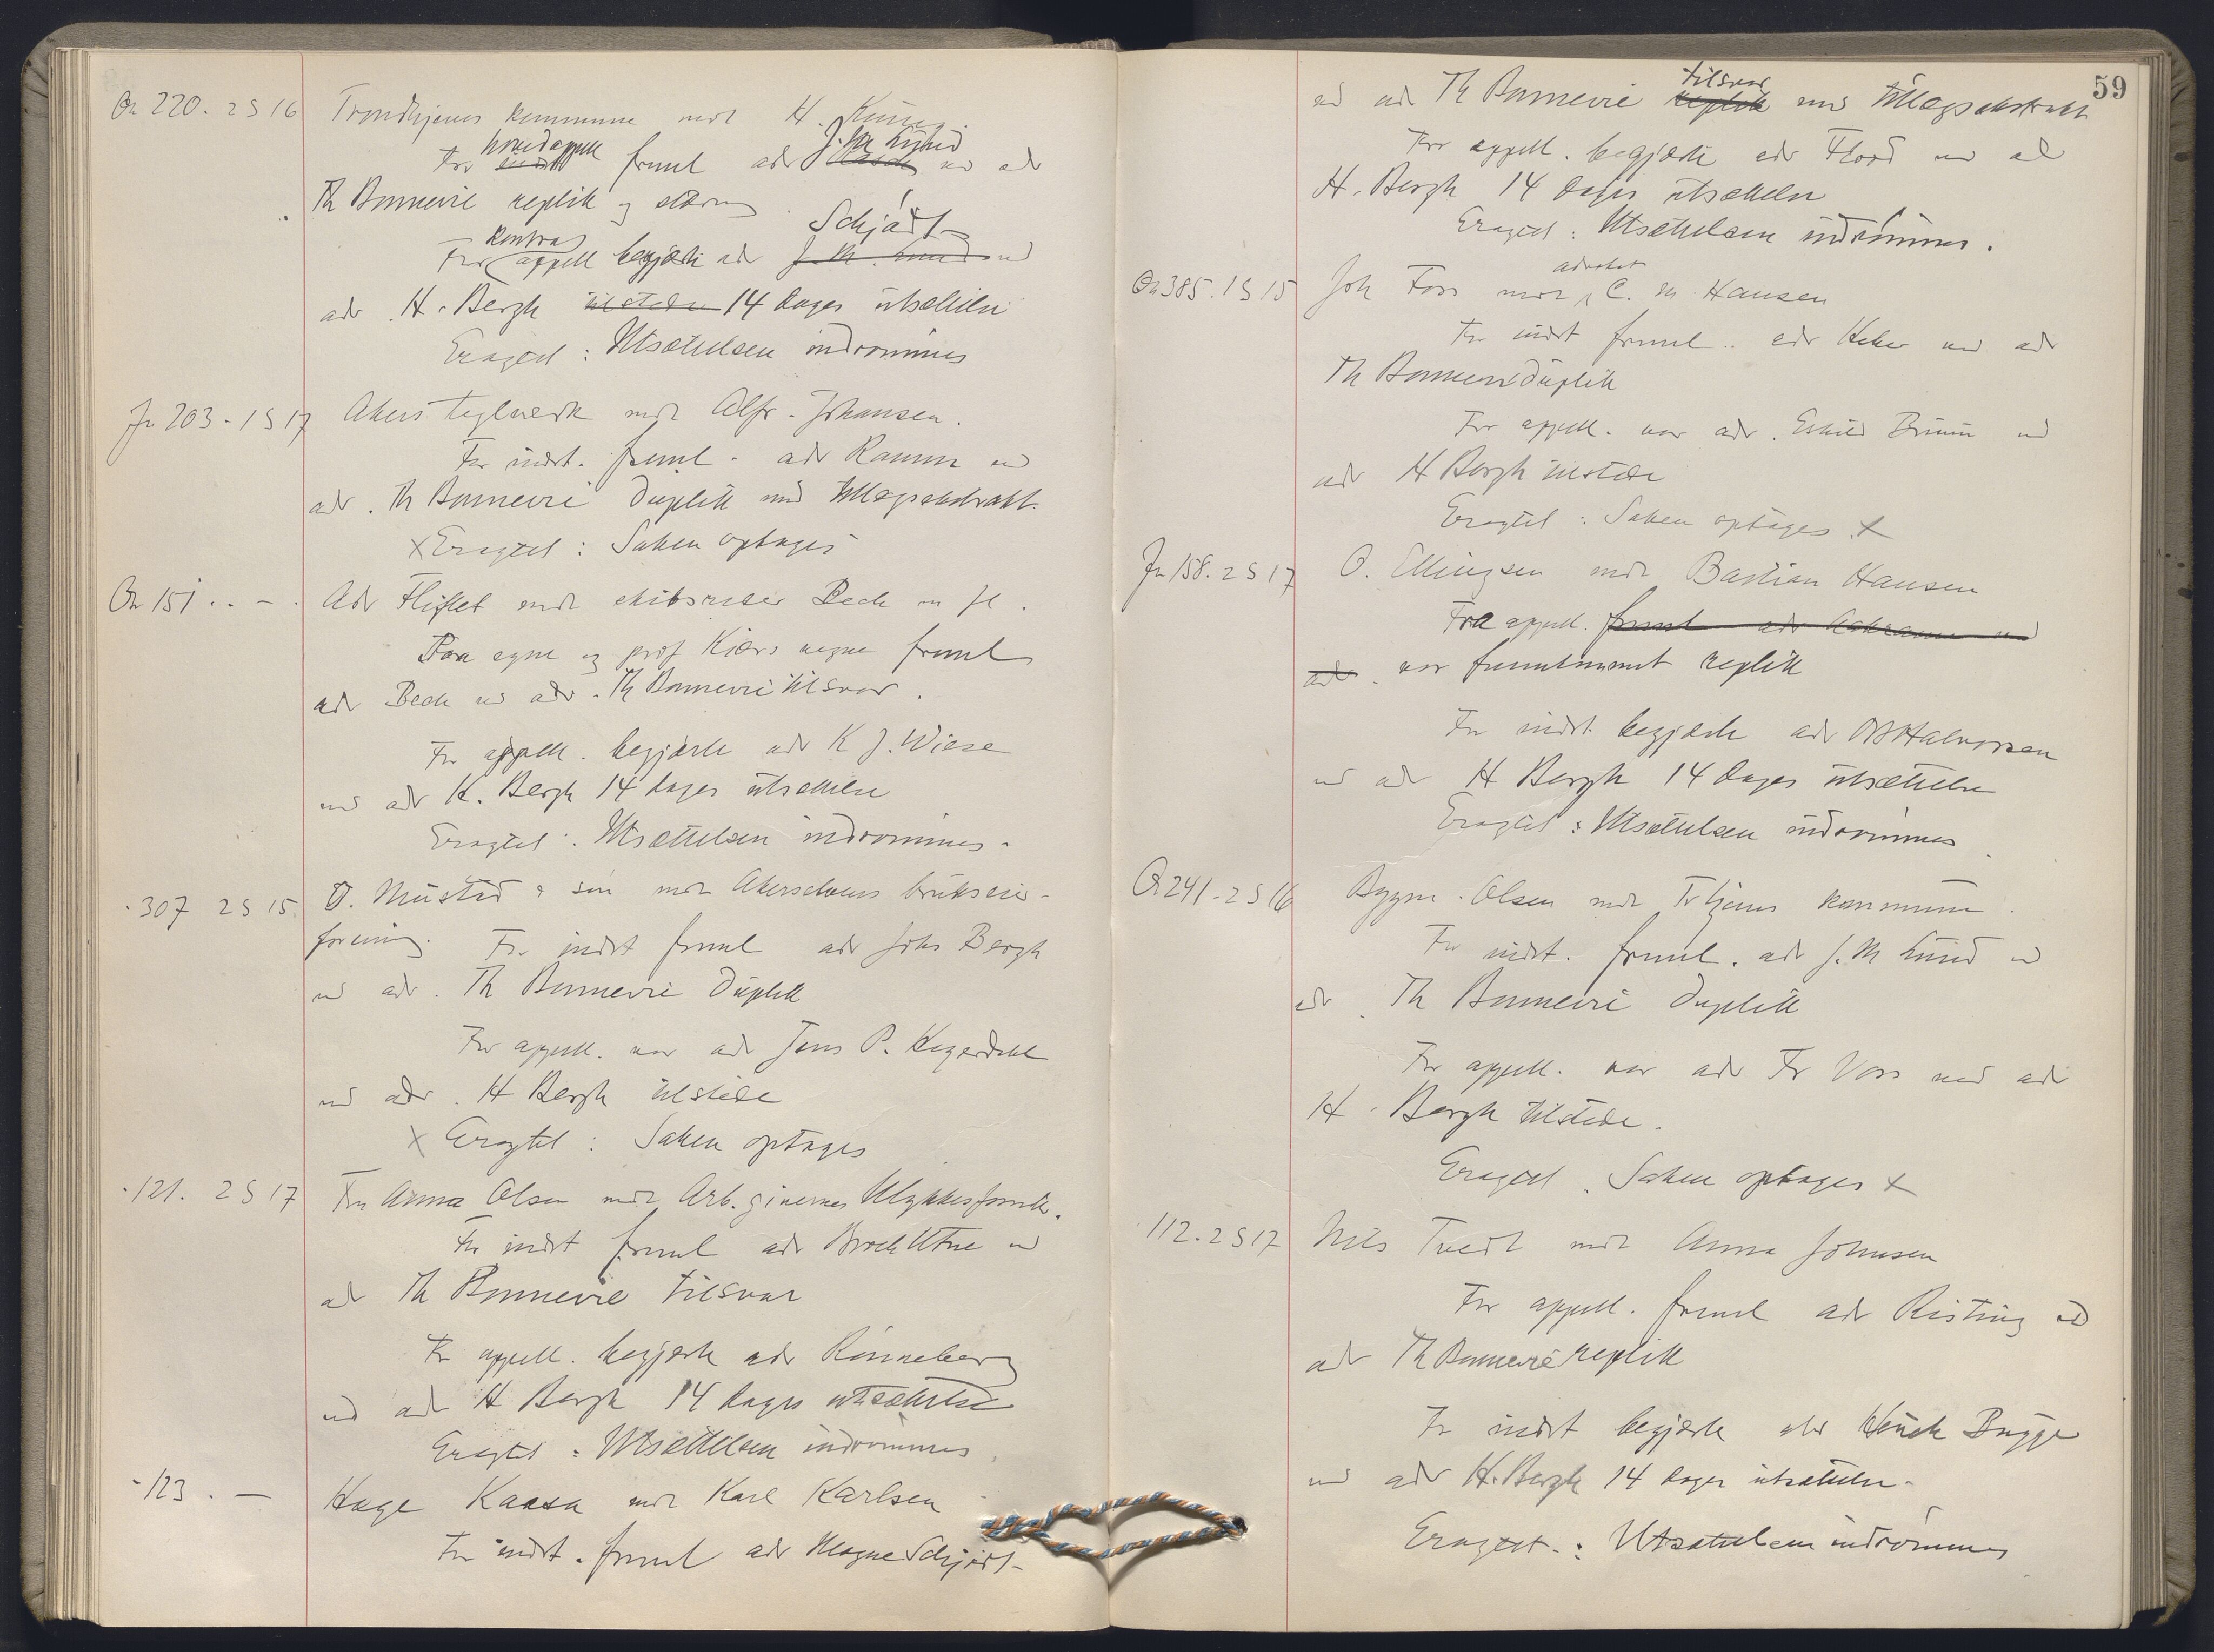 On 220. 2 S 16 Trondhjems kommune mot H.
For hovedappell freml adv J. M. Lund ved adv
Th Bonnevie replik og
For kontraappell begjærte adv Schjødt ved
adv. H. Bergh tilstede 14 dages utsættelse
Eragtet: Utsættelsen indrømmes
Jn 203 - 1 S 17 Akers teglverk mot Alfr. Johansen.
For indst. freml. adv Ramm ved
adv. Th Bonnevie duplik med tillægsekstrakt.
x Eragtet: Saken optages
On 151 . . - . Adv Fliflet mot skibsreder Beck m fl.
Paa egne og prof Kiærs vegne freml
adv Beck ved adv. Th Bonnevie tilsvar.
For appell. begjærte adv K J. Wiese
ved adv H. Bergh 14 dages utsættelse
Eragtet: Utsættelsen indrømmes.
- 307 2 S 15. O. Mustad & søn mot Akershus brukseier-
forening. For indst freml adv Johs Bergh
ved adv. Th Bonnevie Duplik
For appell. var adv Jens P. Heyerdahl
ved adv. H Bergh tilstede
x Eragtet: Saken optages
- 121. 2 S 17 Fru Anna Olsen mot Arb. givernes Ulykkesforsik.
For indst freml adv Broch Utne ved
adv Th Bonnevie tilsvar
For appell. begjærte adv Rønneberg
ved adv H Bergh 14 dages utsættelse
Eragtet: Utsættelsen indrømmes.
- 123. - Hage Kaasa mot Karl Karlsen
For indst. freml adv Magne Schjødt
59
ved adv Th Bonnevie replik tilsvar med tillægsekstrakt
For appell. begjærte adv Flood ved adv
H. Bergh 14 dages utsættelse
Eragtet: Utsættelsen indrømmes.
On 385. 1 S 15 Joh Foss mot advokat C. M. Hansen
For indst freml. adv ved adv
Th Bonnevie Duplik
For appell. var adv. Eskild Bruun ved
adv H Bergh tilstede
Eragtet: Saken optages x
Jn 158. 2 S 17 O. Ellingsen mot Bastian Hansen
Fra appell. freml adv ved
adv. var fremkommet replik
For indst. begjærte adv O B Halvorsen
ved adv H Bergh 14 dages utsættelse
Eragtet: Utsættelsen indrømmes
On 241. 2 S 16 Bygm. Olsen mot Trhjems kommune.
For indst. freml. adv J. M Lund ved
adv. Th Bonnevie Duplik
For appell. var adv Fr Voss ved adv
H. Bergh tilstede.
Eragtet. Saken optages x
112. 2 S 17 Nils Tvedt mot Anna Johnsen
For appell. freml adv Risting ved
adv Th Bonnevie replik
For indst begjærte adv Henrik Bugge
ved adv H. Bergh 14 dages utsættelse.
Eragtet.: Utsættelsen indrømmes